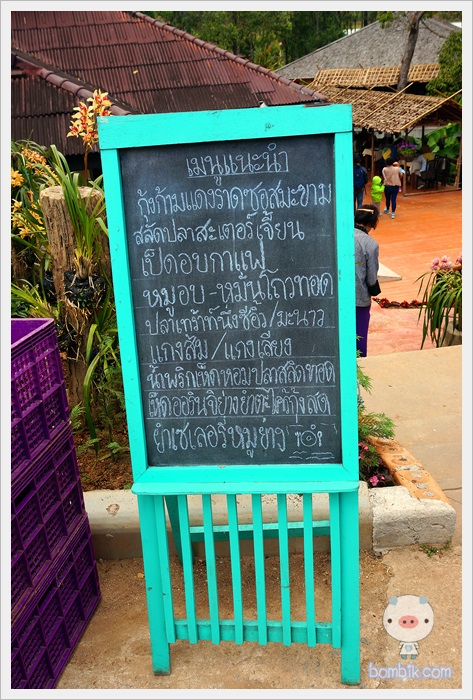 เมนูแนะนำ
กุ้งก้ามแดงราดซอสมะขาม
สลัดปลาสเตอร์เจี้ยน
เป็ดอบกาแฟ
หมูอบ-หมั่นโถวทอด
ปลาเทร้าท์นึ่งซีอิ๊ว/มะนาว
แกงส้ม/แกงเลียง
น้ำพริกเห็ดหอมปลาสลิดทอด
เห็ดออรินจิย่างยำตะไคร้กุ้งสด
ยำเซเลอรี่หมูย่าง
bombik.com